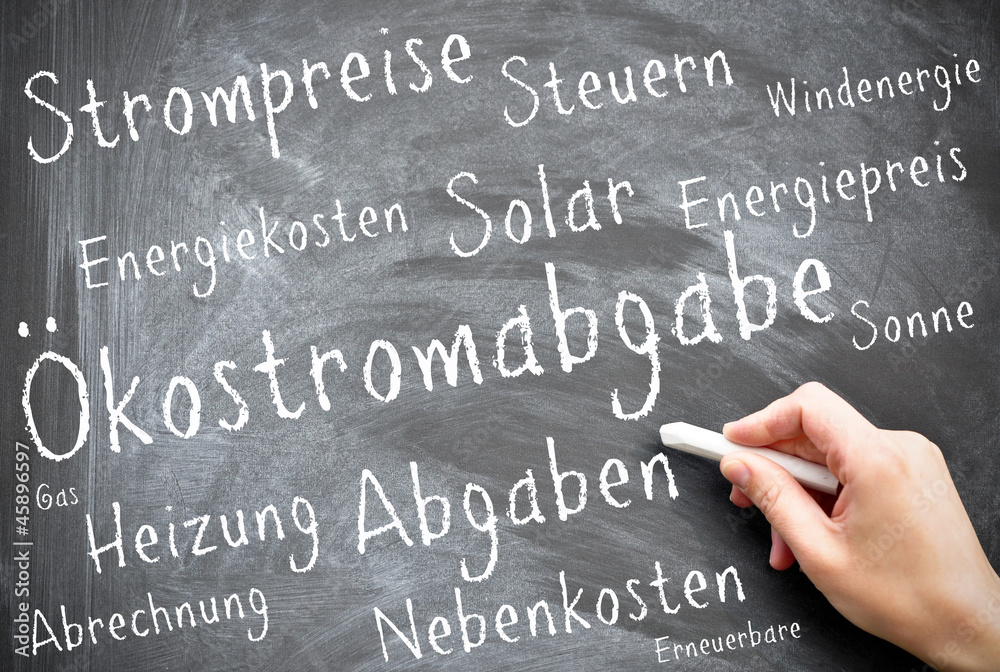 Strompreise Steuern Windenergie
Energiekosten Solar Energiepreis
Ökostromabgabe Sonne
Gas Heizung Abgaben
Abrechnung Nebenkosten Erneuerbare
Adobe Stock | #45896597